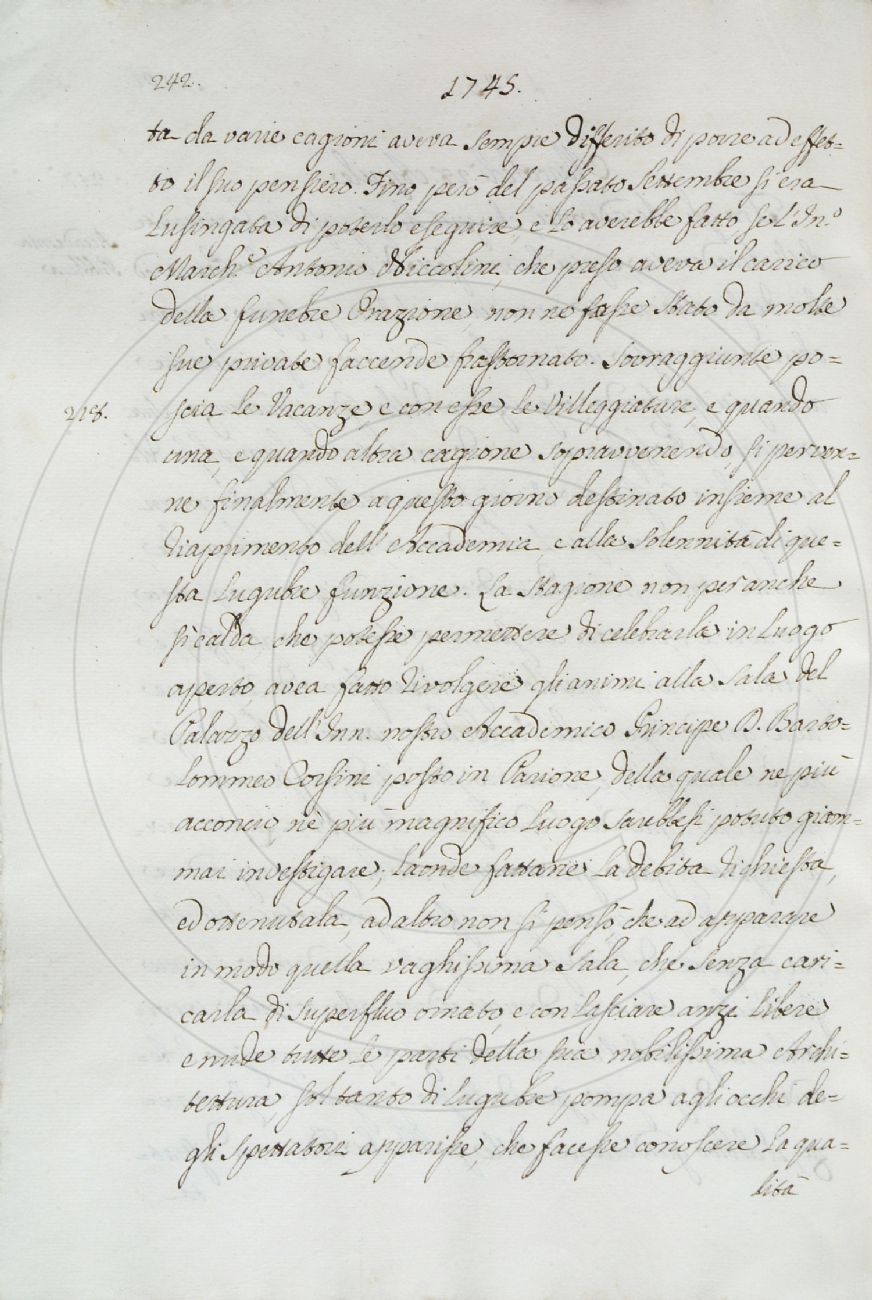 242.
1745.
ta da varie cagioni aveva sempre differito di porre ad effet=
to il suo pensiero. Fino però del passato Settembre si era
Lusingata di poterlo eseguire, e lo averebbe fatto se l'In.º
March.e Antonio Niccolini, che preso aveva il carico
della funebre Orazione, non ne fosse stato da molte
sue private faccende frastornato. Sovraggiunte po=
218.
scia le Vacanze, e con esse le Villeggiature, e quando
una, e quando altra cagione sopravvenendo, si perven=
ne finalmente a questo giorno destinato insieme al
riaprimento dell'Accademia e alla solennità di que=
sta lugubre funzione. La Stagione non per anche
sì calda che potesse permettere di celebrarla in Luogo
aperto, avea fatto rivolgere gli animi alla Sala del
Palazzo dell'Inn. nostro Accademico Principe D. Barto=
lommeo Corsini posto in Parione, della quale ne più
acconcio, nè più magnifico Luogo sarebbesi potuto giam=
mai investigare; laonde fattane la debita richiesta,
ed ottenutala, ad altro non si pensò, che ad apparare
in modo quella vaghissima Sala, che senza cari=
carla di superfluo ornato, e con lasciare anzi libere
e nude tutte le parti della sua nobilissima Archi=
tettura, sol tanto di lugubre pompa agli occhi de=
gli Spettatori apparisse, che facesse conoscere la qua=
lità